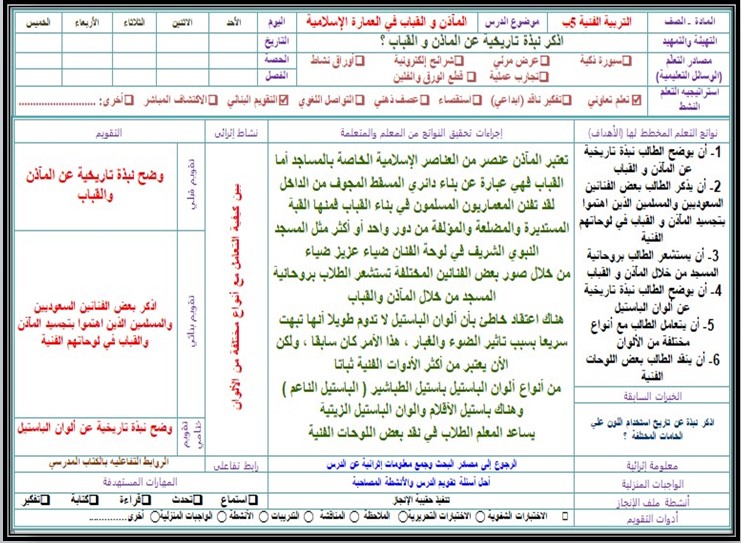 المادة - الصف
التربية الفنية 5ب
موضوع الدرس
المآذن و القباب في العمارة الإسلامية
اليوم
الأحد
الاثنين
الثلاثاء
الأربعاء
الخميس
التهيئة والتمهيد
اذكر نبذة تاريخية عن الماذن و القباب ؟
التاريخ
مصادر التعلم
(الوسائل التعليمية)
سبورة ذكية
عرض مرئي
شرائح إلكترونية
أوراق نشاط
تجارب عملية
قطع الورق والفلين
الحصة
الفصل
استراتيجيه التعلم
النشط
تعلم تعاوني
تفكير ناقد (ابداعي)
استقصاء
عصف ذهني
التواصل اللغوي
التقويم البنائي
الاكتشاف المباشر
أخرى: ............................
نواتج التعلم المخطط لها (الأهداف)
إجراءات تحقيق النواتج من المعلم والمتعلمة
نشاط إثرائي
التقويم
1- أن يوضح الطالب نبذة تاريخية
عن المآذن و القباب
2- أن يذكر الطالب بعض الفنانين
السعوديين والمسلمين الذين اهتموا
بتجسيد المآذن و القباب في لوحاتهم
الفنية
3- أن يستشعر الطالب بروحانية
المسجد من خلال المآذن و القباب
4- أن يوضح الطالب نبذة تاريخية
عن ألوان الباستيل
5- أن يتعامل الطالب مع أنواع
مختلفة من الألوان
6- أن ينقد الطالب بعض اللوحات
الفنية
الخبرات السابقة
اذكر نبذة عن تاريخ استخدام اللون علي
الخامات المختلفة ؟
تعتبر المآذن عنصر من العناصر الإسلامية الخاصة بالمساجد أما
القباب فهي عبارة عن بناء دائري المسقط المجوف من الداخل
لقد تفنن المعماريون المسلمون في بناء القباب فمنها القبة
المستديرة والمضلعة والمؤلفة من دور واحد أو أكثر مثل المسجد
النبوي الشريف في لوحة الفنان ضياء عزيز ضياء
من خلال صور بعض الفنانين المختلفة تستشعر الطلاب بروحانية
المسجد من خلال المآذن والقباب
هناك اعتقاد خاطئ بأن ألوان الباستيل لا تدوم طويلا أنها تبهت
سريعا بسبب تاثير الضوء والغبار ، هذا الامر كان سابقا ، ولكن
الأن يعتبر من أكثر الأدوات الفنية ثباتا
من أنواع ألوان الباستيل باستيل الطباشير ( الباستيل الناعم )
وهناك باستيل الأقلام والوان الباستيل الزيتية
يساعد المعلم الطلاب في نقد بعض اللوحات الفنية
بين كيفية التعامل مع أنواع مختلفة من الألوان
تقويم قبلي
وضح نبذة تاريخية عن المآذن
والقباب
تقويم بنائي
اذكر بعض الفنانين السعوديين
والمسلمين الذين اهتموا بتجسيد المآذن
والقباب في لوحاتهم الفنية
تقويم ختامي
وضح نبذة تاريخية عن ألوان الباستيل
معلومة إثرائية
الرجوع إلى مصادر البحث وجمع معلومات إثرائية عن الدرس
رابط تفاعلي
الروابط التفاعليه بالكتاب المدرسي
الواجبات المنزلية
أحل أسئلة تقويم الدرس والأنشطة المصاحبة
المهارات المستهدفة
أنشطة ملف الإنجاز
تنفيذ حقيبة الإنجاز
استماع
تحدث
قراءة
كتابة
تفكير
أدوات التقويم
الاختبارات الشفوية
الاختبارات التحريرية
الملاحظة
المناقشة
التدريبات
الأنشطة
الواجبات المنزلية
أخرى...............